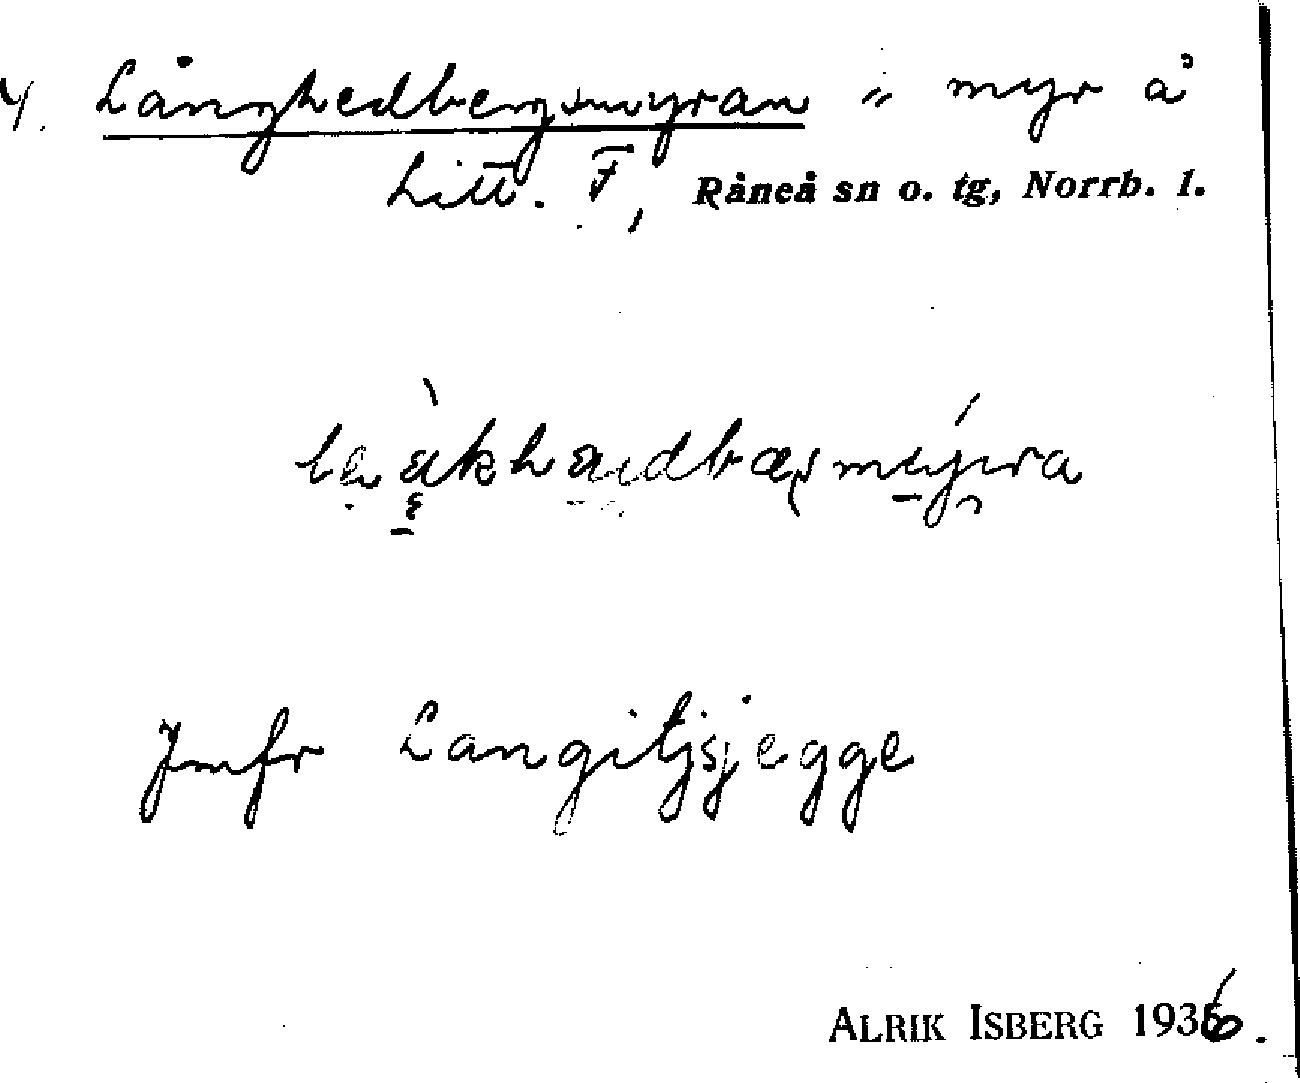 Långhedbergsmyran = myr å
Litt. F, Råneå sn o. tg, Norrb. l.
Jmfr Langitjsjegge
ALRIK ISBERG 1936.